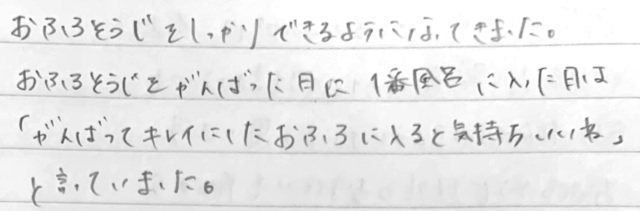 おふろそうじをしっかりできるようになってきました。
おふろそうじをがんばった日に1番風呂に入った日は
「がんばってキレイにしたおふろに入ると気持ちいいね」
と言っていました。